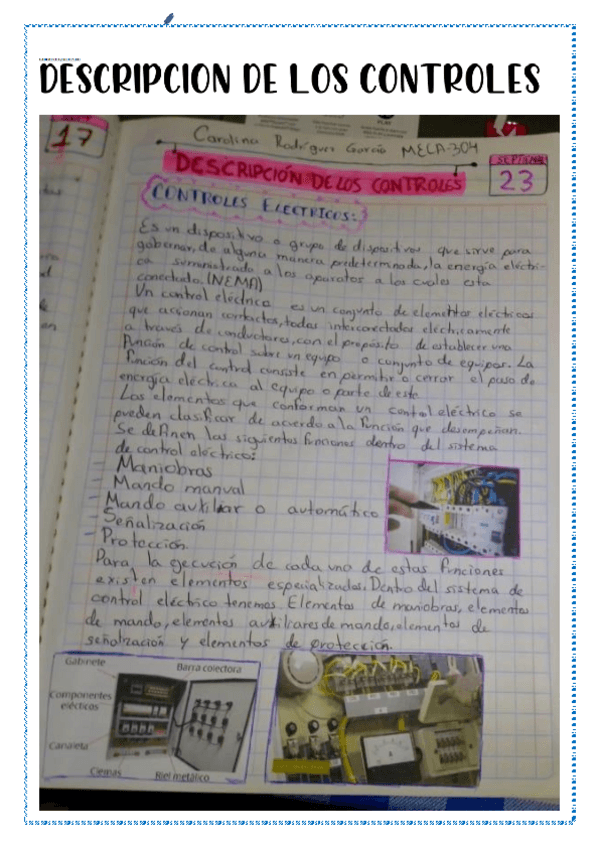 DESCRIPCION DE LOS CONTROLES
17
Carolina Rodríguez García MECA-304
DESCRIPCIÓN DE LOS CONTROLES
SEPTIEMBRE
23
CONTROLES ELECTRICOS:
Es un dispositivo o grupo de dispositivos que sirve para
gobernar, de alguna manera predeterminada, la energía eléctri-
ca suministrada a los aparatos a los cuales esta
conectado. (NEMA)
Un control eléctrico es un conjunto de elementos eléctricos
que accionan contactos, todos interconectados eléctricamente
a través de conductores, con el propósito de establecer una
función de control sobre un equipo o conjunto de equipos. La
función del control consiste en permitir o cerrar el paso de
energía eléctrica al equipo o parte de este.
Los elementos que conforman un control eléctrico se
pueden clasificar de acuerdo a la función que desempeñan.
Se definen las siguientes funciones dentro del sistema
de control eléctrico:
- Maniobras
- Mando manual
- Mando auxiliar o automático
- Señalización
- Protección
Para la ejecución de cada uno de estas funciones
existen elementos especializados. Dentro del sistema de
control eléctrico tenemos. Elementos de maniobras, elementos
de mando, elementos auxiliares de mando, elementos de
señalización y elementos de protección.
Gabinete
Barra colectora
Componentes
eléctricos
Canaleta
Clemas
Riel metálico